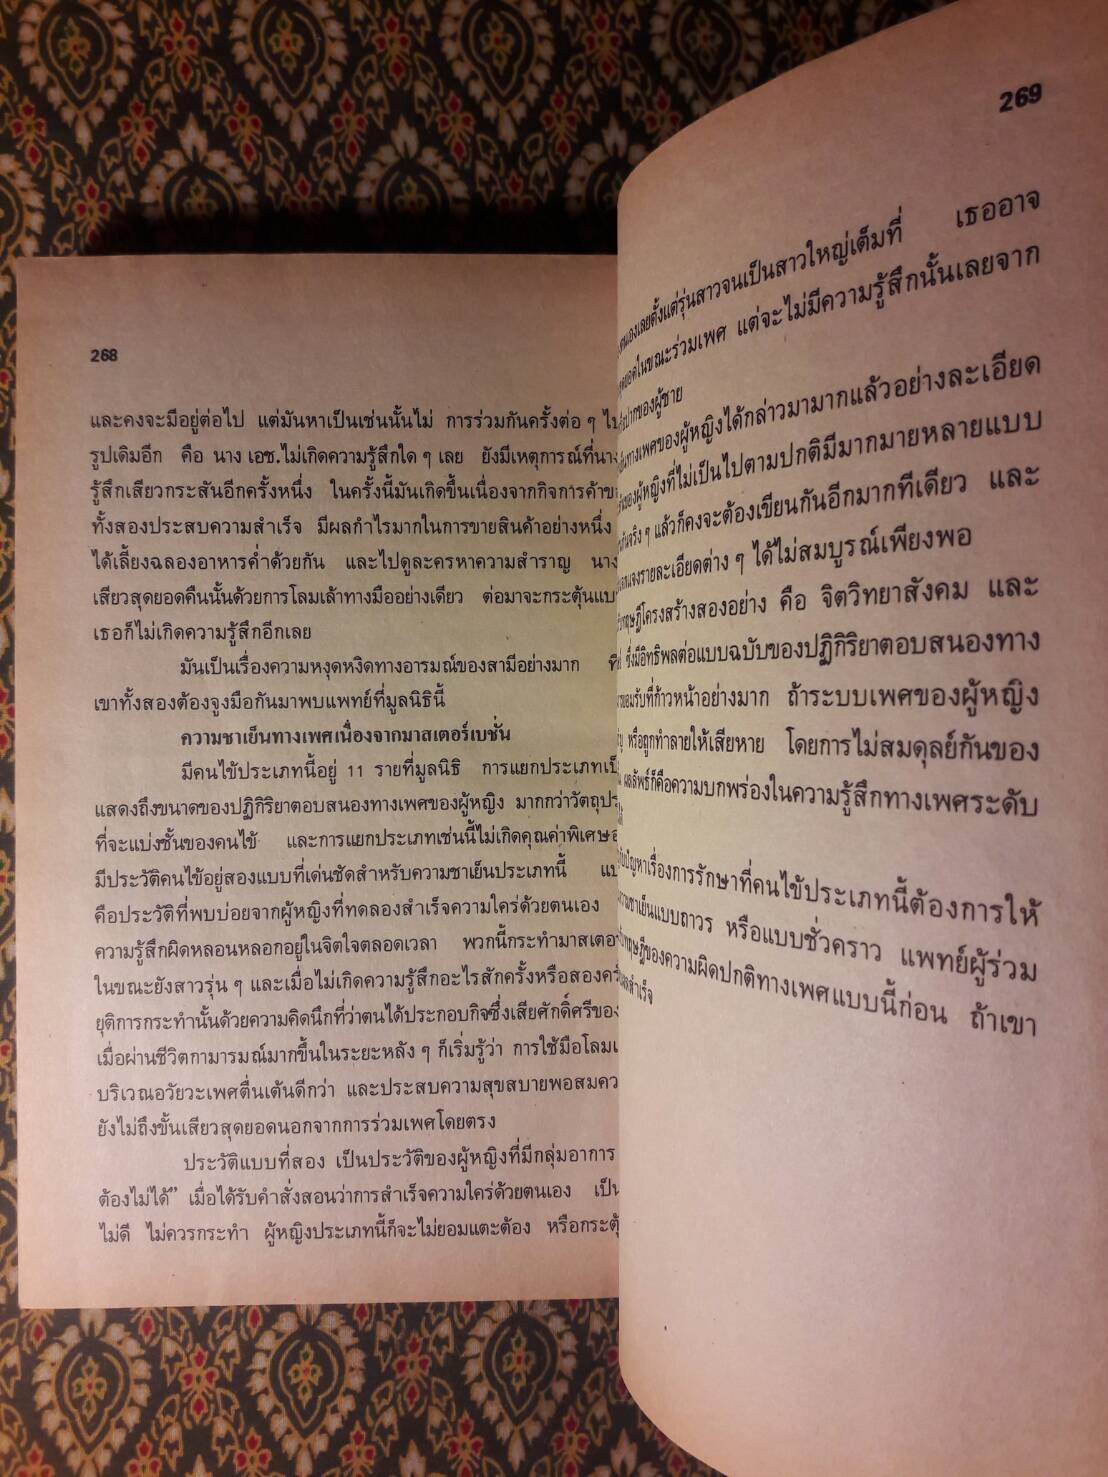 268
และคงจะมีอยู่ต่อไป แต่มันหาเป็นเช่นนั้นไม่ การร่วมกันครั้งต่อ ๆ ไป
รูปเดิมอีก คือ นาง เอช.ไม่เกิดความรู้สึกใด ๆ เลย ยังมีเหตุการณ์ที่นาง
รู้สึกเสียวกระสันอีกครั้งหนึ่ง ในครั้งนี้มันเกิดขึ้นเนื่องจากกิจการค้า
ทั้งสองประสบความสำเร็จ มีผลกำไรมากในการขายสินค้าอย่างหนึ่ง
ได้เลี้ยงฉลองอาหารค่ำด้วยกัน และไปดูละครหาความสำราญ นาง
เสียวสุดยอดคืนนั้นด้วยการโลมเล้าทางมืออย่างเดียว ต่อมาจะกระตุ้น
เธอก็ไม่เกิดความรู้สึกอีกเลย
มันเป็นเรื่องความหงุดหงิดทางอารมณ์ของสามีอย่างมาก
เขาทั้งสองต้องจูงมือกันมาพบแพทย์ที่มูลนิธินี้
ความชาเย็นทางเพศเนื่องจากมาสเตอร์เบชั่น
มีคนไข้ประเภทนี้อยู่ 11 รายที่มูลนิธิ การแยกประเภท
แสดงถึงขนาดของปฏิกิริยาตอบสนองทางเพศของผู้หญิง มากกว่า
ที่จะแบ่งชั้นของคนไข้ และการแยกประเภทเช่นนี้ไม่เกิดคุณค่าพิเศษ
มีประวัติคนไข้อยู่สองแบบที่เด่นชัดสำหรับความชาเย็นประเภทนี้
คือประวัติที่พบบ่อยจากผู้หญิงที่ทดลองสำเร็จความใคร่ด้วยตนเอง
ความรู้สึกผิดหลอนหลอกอยู่ในจิตใจตลอดเวลา พวกนี้กระทำ
ในขณะยังสาวรุ่น ๆ และเมื่อไม่เกิดความรู้สึกอะไรสักครั้งหรือสอง
ยุติการกระทำนั้นด้วยความคิดนึกที่ว่าตนได้ประกอบกิจซึ่งเสียศักดิ์ศรีของ
เมื่อผ่านชีวิตกามารมณ์มากขึ้นในระยะหลัง ๆ ก็เริ่มรู้ว่า การใช้มือ
บริเวณอวัยวะเพศตื่นเต้นดีกว่า และประสบความสุขสบาย
ยังไม่ถึงขั้นเสียวสุดยอดนอกจากการร่วมเพศโดยตรง
ประวัติแบบที่สอง เป็นประวัติของผู้หญิงที่มีกลุ่มอาการ
ต้องไม่ได้” เมื่อได้รับคำสั่งสอนว่าการสำเร็จความใคร่ด้วยตนเอง
ไม่ดี ไม่ควรกระทำ ผู้หญิงประเภทนี้ก็จะไม่ยอมแตะต้อง
269
ตั้งแต่รุ่นสาวจนเป็นสาวใหญ่เต็มที่ เธออาจ
ในขณะร่วมเพศ แต่จะไม่มีความรู้สึกนั้นเลยจาก
ของผู้ชาย
ทางเพศของผู้หญิงได้กล่าวมามากแล้วอย่างละเอียด
ของผู้หญิงที่ไม่เป็นไปตามปกติมีมากมายหลายแบบ
ๆ แล้วก็คงจะต้องเขียนกันอีกมากทีเดียว และ
รายละเอียดต่าง ๆ ได้ไม่สมบูรณ์เพียงพอ
โครงสร้างสองอย่าง คือ จิตวิทยาสังคม และ
ซึ่งมีอิทธิพลต่อแบบฉบับของปฏิกิริยาตอบสนองทาง
ที่ก้าวหน้าอย่างมาก ถ้าระบบเพศของผู้หญิง
หรือถูกทำลายให้เสียหาย โดยการไม่สมดุลย์กันของ
ผลลัพธ์ก็คือความบกพร่องในความรู้สึกทางเพศระดับ
ปัญหาเรื่องการรักษาที่คนไข้ประเภทนี้ต้องการให้
แบบถาวร หรือแบบชั่วคราว แพทย์ผู้ร่วม
ของความผิดปกติทางเพศแบบนี้ก่อน ถ้าเขา
สำเร็จ